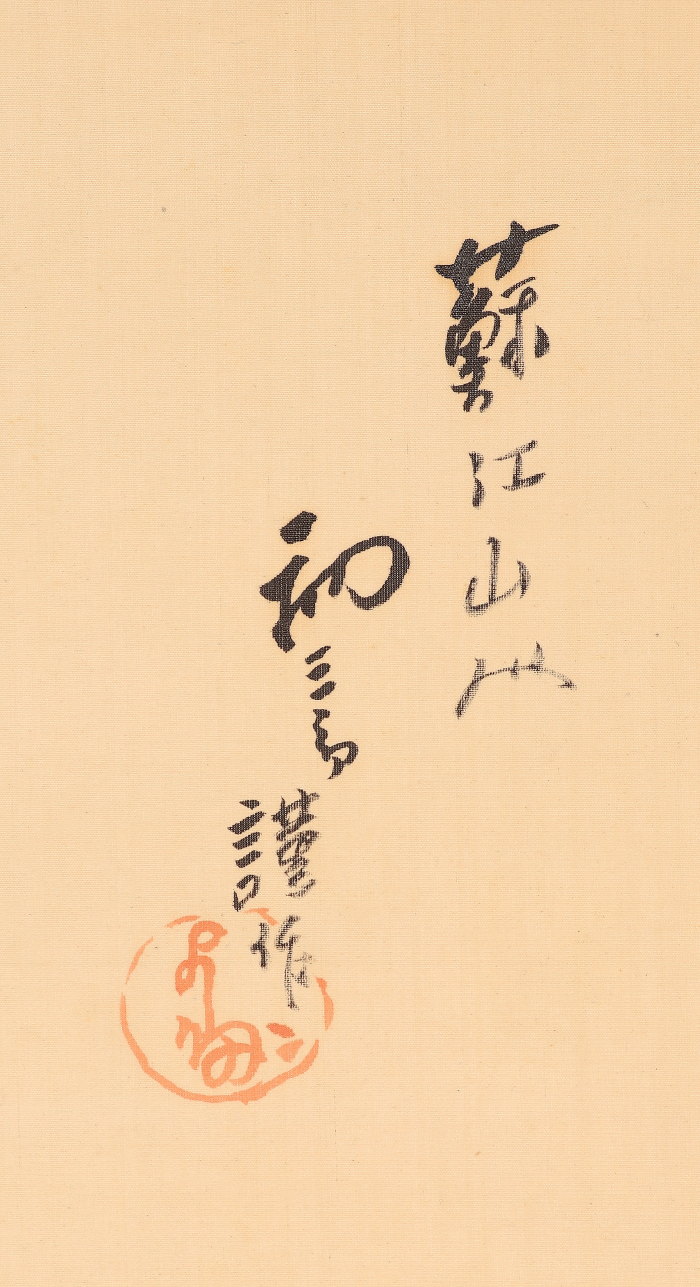 蘇江山人
初三郎
謹作